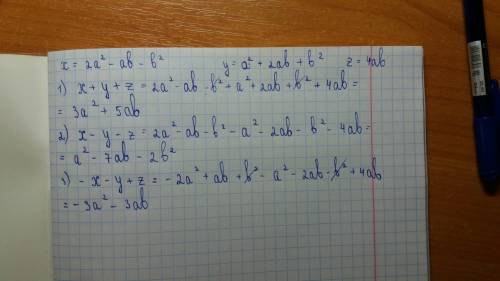 x = 2a² - ab - b² y = a² + 2ab + b² z = 4ab
1) x + y + z = 2a² - ab - b² + a² + 2ab + b² + 4ab =
= 3a² + 5ab
2) x - y - z = 2a² - ab - b² - a² - 2ab - b² - 4ab =
= a² - 7ab - 2b²
3) - x - y + z = - 2a² + ab + b² - a² - 2ab - b² + 4ab
= - 3a² - 3ab